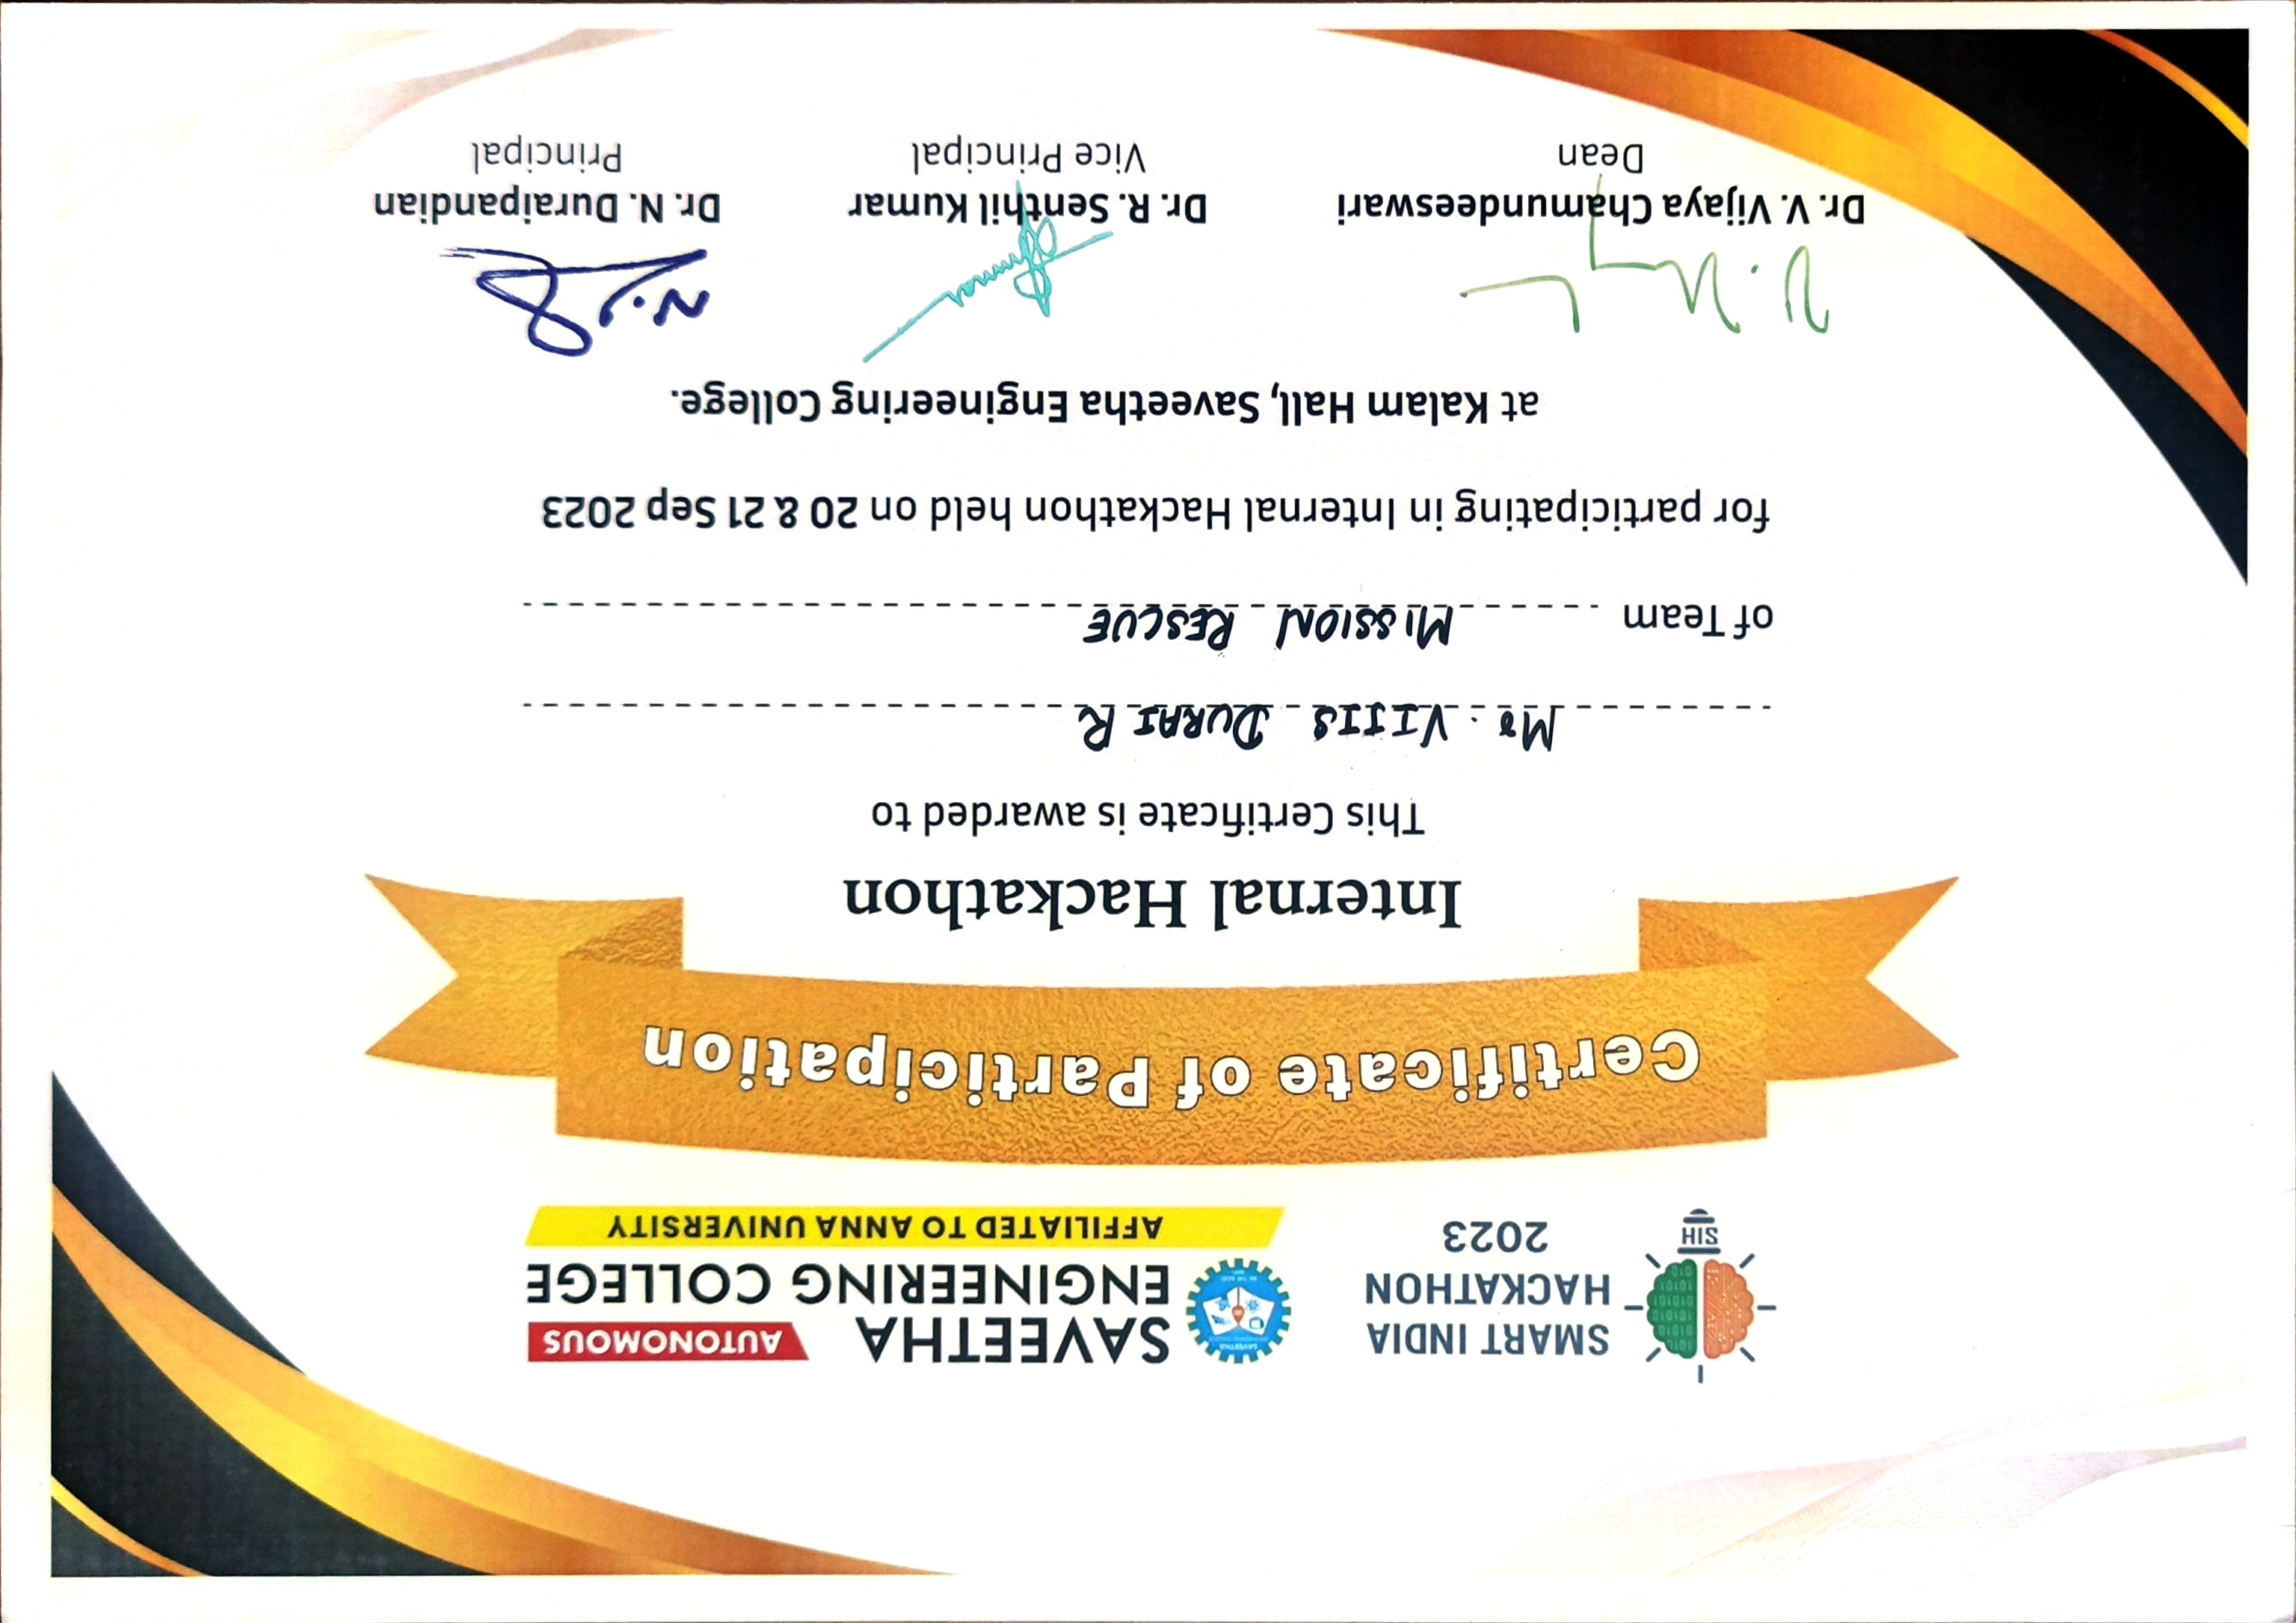 SMART INDIA
HACKATHON
2023
SIH
SAVEETHA
AUTONOMOUS
ENGINEERING COLLEGE
AFFILIATED TO ANNA UNIVERSITY
Certificate of Participation
Internal Hackathon
This Certificate is awarded to
Mr. VIJIS DURAI R
of Team MISSION RESCUE
for participating in Internal Hackathon held on 20 & 21 Sep 2023
at Kalam Hall, Saveetha Engineering College.
Dr. V. Vijaya Chamundeeswari
Dean
Dr. R. Senthil Kumar
Vice Principal
Dr. N. Duraipandian
Principal